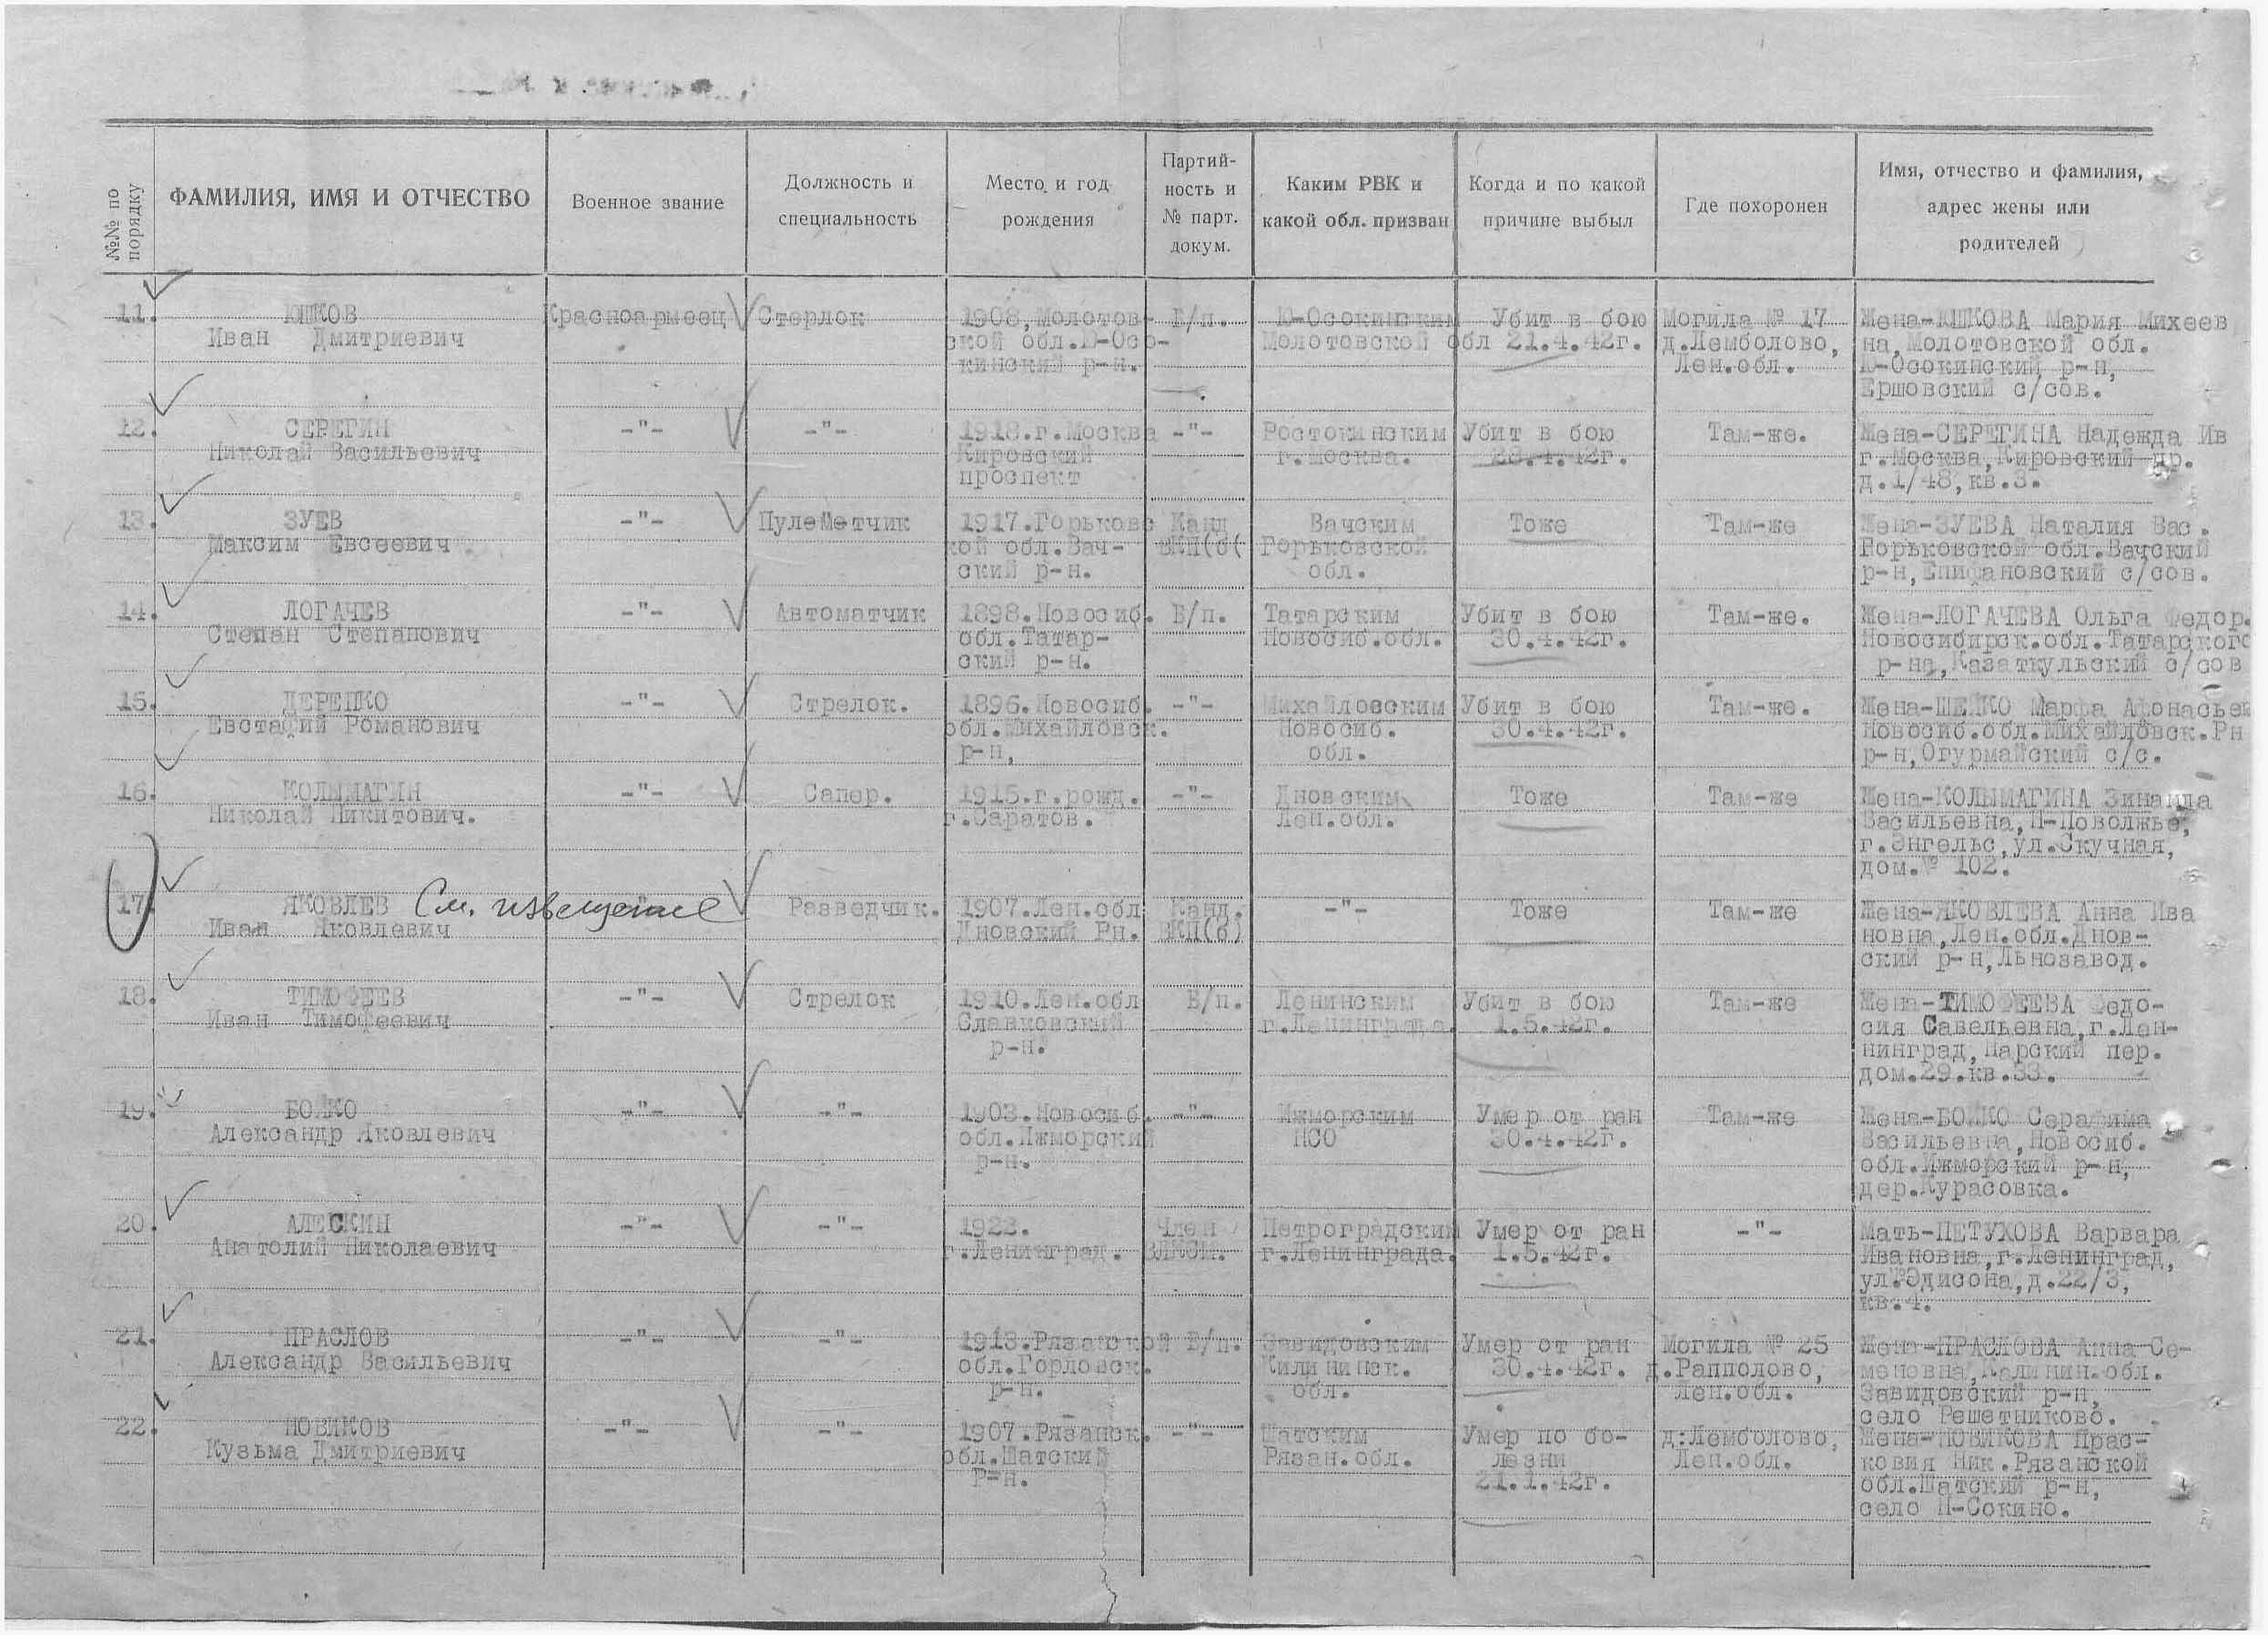 №№ по порядку
ФАМИЛИЯ, ИМЯ И ОТЧЕСТВО
Военное звание
Должность и
специальность
Место и год
рождения
Партий-
ность и
№ парт.
докум.
Каким РВК и
какой обл. призван
Когда и по какой
причине выбыл
Где похоронен
Имя, отчество и фамилия,
адрес жены или
родителей
11.
ЮШКОВ
Иван Дмитриевич
Красноармеец
Стерлок
1908, Молотов-
ской обл.Ю-Осо-
кинский р-н.
Б/п.
Ю-Осокинским
Молотовской обл
Убит в бою
21.4.42г.
Могила № 17
д.Лемболово,
Лен.обл.
Жена-ЮШКОВА Мария Михеев
на, Молотовской обл.
Ю-Осокинский р-н,
Ершовский с/сов.
12.
СЕРЕГИН
Николай Васильевич
-"-
-"-
1918.г.Москва
Кировский
проспект
-"-
Ростокинским
г.Москва.
Убит в бою
28.4.42г.
Там-же.
Жена-СЕРЕГИНА Надежда Ив
г.Москва,Кировский пр.
д.1/48,кв.3.
13.
ЗУЕВ
Максим Евсеевич
-"-
ПулеМетчик
1917.Горьковс
кой обл.Вач-
ский р-н.
Канд
ВКП(б(
Вачским
Горьковской
обл.
Тоже
Там-же
Жена-ЗУЕВА Наталия Вас.
Горьковской обл.Вачский
р-н,Епифановский с/сов.
14.
ЛОГАЧЕВ
Степан Степанович
-"-
Автоматчик
1898.Новосиб.
обл.Татар-
ский р-н.
Б/п.
Татарским
Новосиб.обл.
Убит в бою
30.4.42г.
Там-же.
Жена-ЛОГАЧЕВА Ольга Федор.
Новосибирск.обл.Татарского
р-на,Казаткульский с/сов
15.
ДЕРЕПКО
Евстафий Романович
-"-
Стрелок.
1896.Новосиб.
обл.Михайловск.
р-н,
-"-
Михайловским
Новосиб.
обл.
Убит в бою
30.4.42г.
Там-же.
Марфа Афонасьев
Новосиб.обл.Михайловск.Рн
р-н,Огурмайский с/с.
16.
КОЛЫМАГИН
Николай Никитович.
-"-
Сапер.
1915.г.рожд.
г.Саратов.
-"-
Дновским
Лен.обл.
Тоже
Там-же
Жена-КОЛЫМАГИНА Зинаида
Васильевна, Н-Поволжье,
г.Энгельс,ул.Скучная,
дом.№ 102.
17.
ЯКОВЛЕВ См. извещение
Иван Яковлевич
Разведчик.
1907.Лен.обл
Дновский Рн.
Канд.
ВКП(б)
-"-
Тоже
Там-же
Жена-ЯКОВЛЕВА Анна Ива
новна,Лен.обл.Днов-
ский р-н,Льнозавод.
18.
ТИМОФЕЕВ
Иван Тимофеевич
-"-
Стрелок
1910.Лен.обл
Славковский
р-н.
Б/п.
Ленинским
г.Ленинграда.
Убит в бою
1.5.42г.
Там-же
Жена-ТИМОФЕЕВА Федо-
сия Савельевна,г.Лен-
нинград,Нарский пер.
дом.29.кв.33.
19.
БОЙКО
Александр Яковлевич
-"-
-"-
1903.Новосиб.
обл.Ижморский
р-н.
-"-
Ижморским
НСО
Умер от ран
30.4.42г.
Там-же
Жена-БОЙКО Серафима
Васильевна,Новосиб.
обл.Ижморский р-н,
дер.Курасовка.
20.
АЛЕСКИН
Анатолий Николаевич
-"-
-"-
1922.
г.Ленинград.
Член
ВЛКСМ.
Петроградский
г.Ленинграда.
Умер от ран
1.5.42г.
-"-
Мать-ПЕТУХОВА Варвара
Ивановна,г.Ленинград,
ул.Эдисона,д.22/3,
кв.4.
21.
ПРАСЛОВ
Александр Васильевич
-"-
-"-
1913.Рязанской
обл.Горловск.
р-н.
Б/п.
Завидовским
Килининск.
обл.
Умер от ран
30.4.42г.
Могила № 25
д.Рапполово,
Лен.обл.
Жена-ПРАСЛОВА Анна Се-
меновна,Калинин.обл.
Завидовский р-н,
село Решетниково.
22.
НОВИКОВ
Кузьма Дмитриевич
-"-
-"-
1907.Рязанск.
обл.Шатский
Р-н.
-"-
Шатским
Рязан.обл.
Умер по бо-
лезни
21.1.42г.
д:Лемболово,
Лен.обл.
Жена-НОВИКОВА Прас-
ковия Ник.Рязанской
обл.Шатский р-н,
село Н-Сокино.